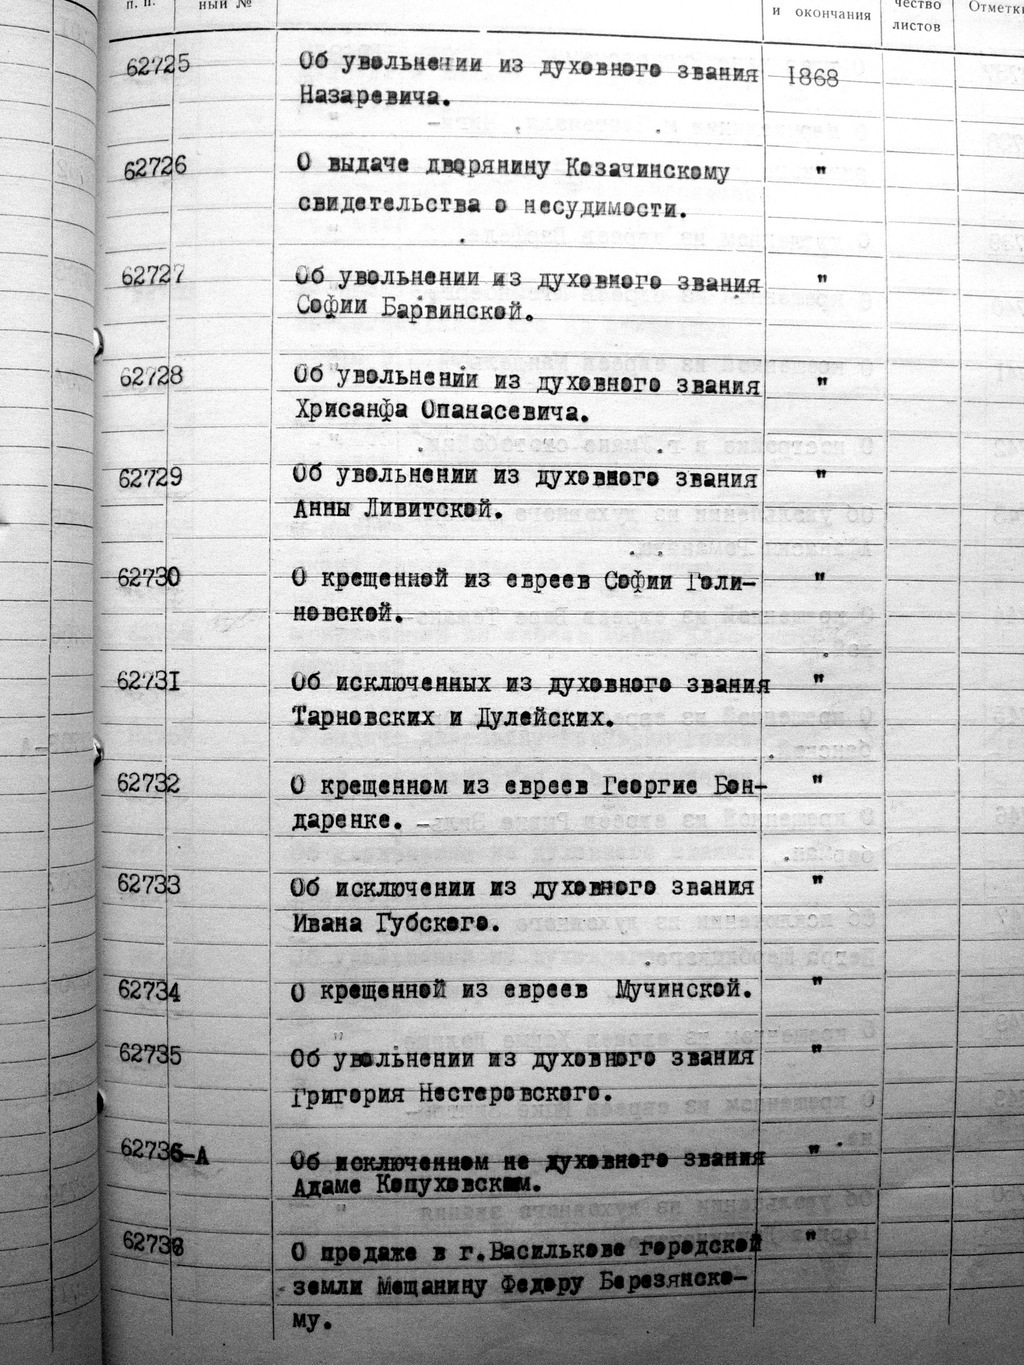 п. п. ный № и окончания чество листов Отметки
62725 Об увольнении из духовного звания 1868
Назаревича.
62726 О выдаче дворянину Козачинскому "
свидетельства о несудимости.
62727 Об увольнении из духовного звания "
Софии Барвинской.
62728 Об увольнении из духовного звания "
Хрисанфа Опанасевича.
62729 Об увольнении из духовного звания "
Анны Ливитской.
62730 О крещенной из евреев Софии Голи- "
новской.
62731 Об исключенных из духовного звания "
Тарновских и Дулейских.
62732 О крещенном из евреев Георгие Бон- "
даренке.
62733 Об исключении из духовного звания "
Ивана Губского.
62734 О крещенной из евреев Мучинской. "
62735 Об увольнении из духовного звания "
Григория Нестеровского.
62735-А Об исключенном не духовного звания "
Адаме Копуховском.
62736 О продаже в г.Василькове городской "
земли Мещанину Федору Березянско-
му.